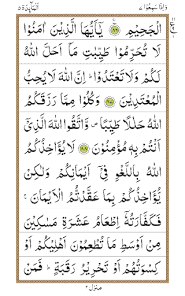 وَإِذَا سَمِعُوا ٧ الْمَآئِدَة ٥
الْجَحِيمِ ﴿٨٦﴾ يَٰٓأَيُّهَا الَّذِينَ اٰمَنُوا
لَا تُحَرِّمُوا طَيِّبٰتِ مَآ اَحَلَّ اللّٰهُ
لَكُمْ وَلَا تَعْتَدُوْا ۚ اِنَّ اللّٰهَ لَا يُحِبُّ
الْمُعْتَدِيْنَ ﴿٨٧﴾ وَكُلُوْا مِمَّا رَزَقَكُمُ
اللّٰهُ حَلٰلًا طَيِّبًا ۪ وَّاتَّقُوا اللّٰهَ الَّذِيْٓ
اَنْتُمْ بِهٖ مُؤْمِنُوْنَ ﴿٨٨﴾ لَا يُؤَاخِذُكُمُ
اللّٰهُ بِاللَّغْوِ فِيْٓ اَيْمَانِكُمْ وَلٰكِنْ
يُّؤَاخِذُكُمْ بِمَا عَقَّدْتُّمُ الْاَيْمَانَ ۚ
فَكَفَّارَتُهٗٓ اِطْعَامُ عَشَرَةِ مَسٰكِيْنَ
مِنْ اَوْسَطِ مَا تُطْعِمُوْنَ اَهْلِيْكُمْ اَوْ
كِسْوَتُهُمْ اَوْ تَحْرِيْرُ رَقَبَةٍ ؕ فَمَنْ
منزل ٢